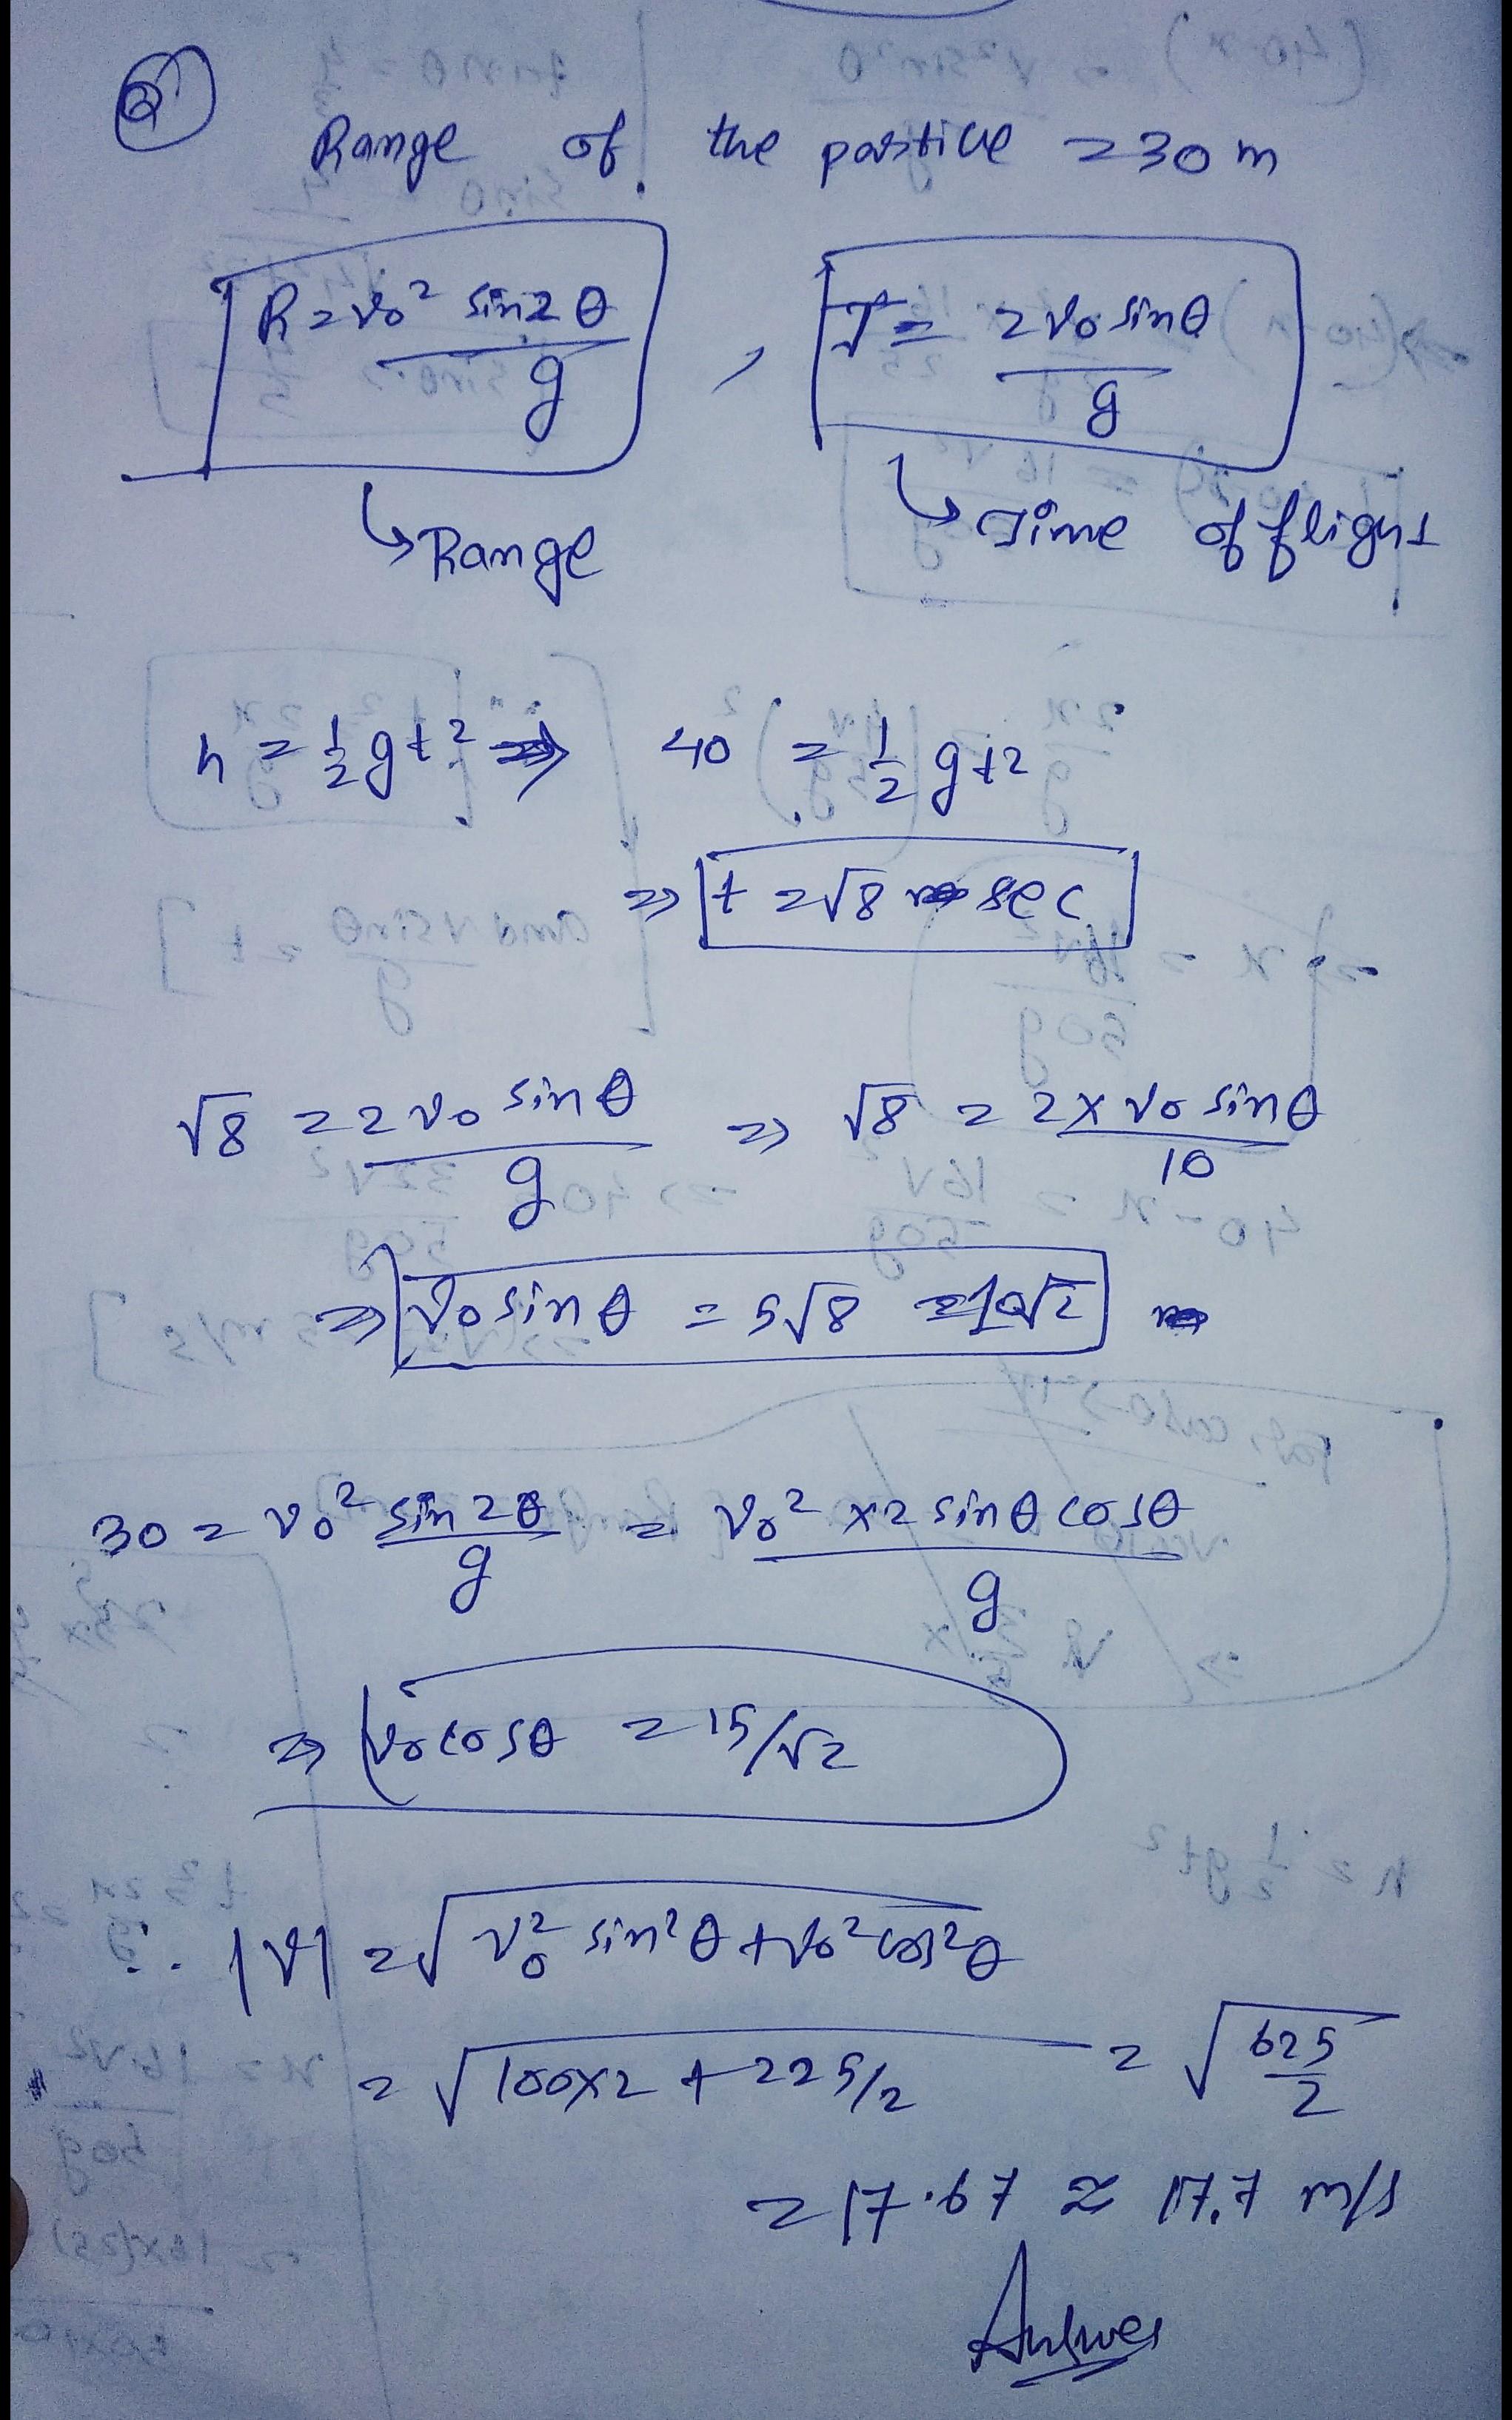 Q
Range of the particle = 30 m
R = v₀² sin2θ / g , T = 2v₀ sinθ / g
↳ Range ↳ Time of flight
h = 1/2 gt² ⇒ 40 = 1/2 gt²
⇒ t = √8 sec
√8 = 2 v₀ sinθ / g ⇒ √8 = 2 × v₀ sinθ / 10
⇒ v₀ sinθ = 5√8 = 10√2
30 = v₀² sin2θ / g = v₀² × 2 sinθ cosθ / g
⇒ v₀ cosθ = 15/√2
∴ |v| = √(v₀² sin²θ + v₀² cos²θ)
= √(100×2 + 225/2) = √(625/2)
= 17.67 ≈ 17.7 m/s
Answer